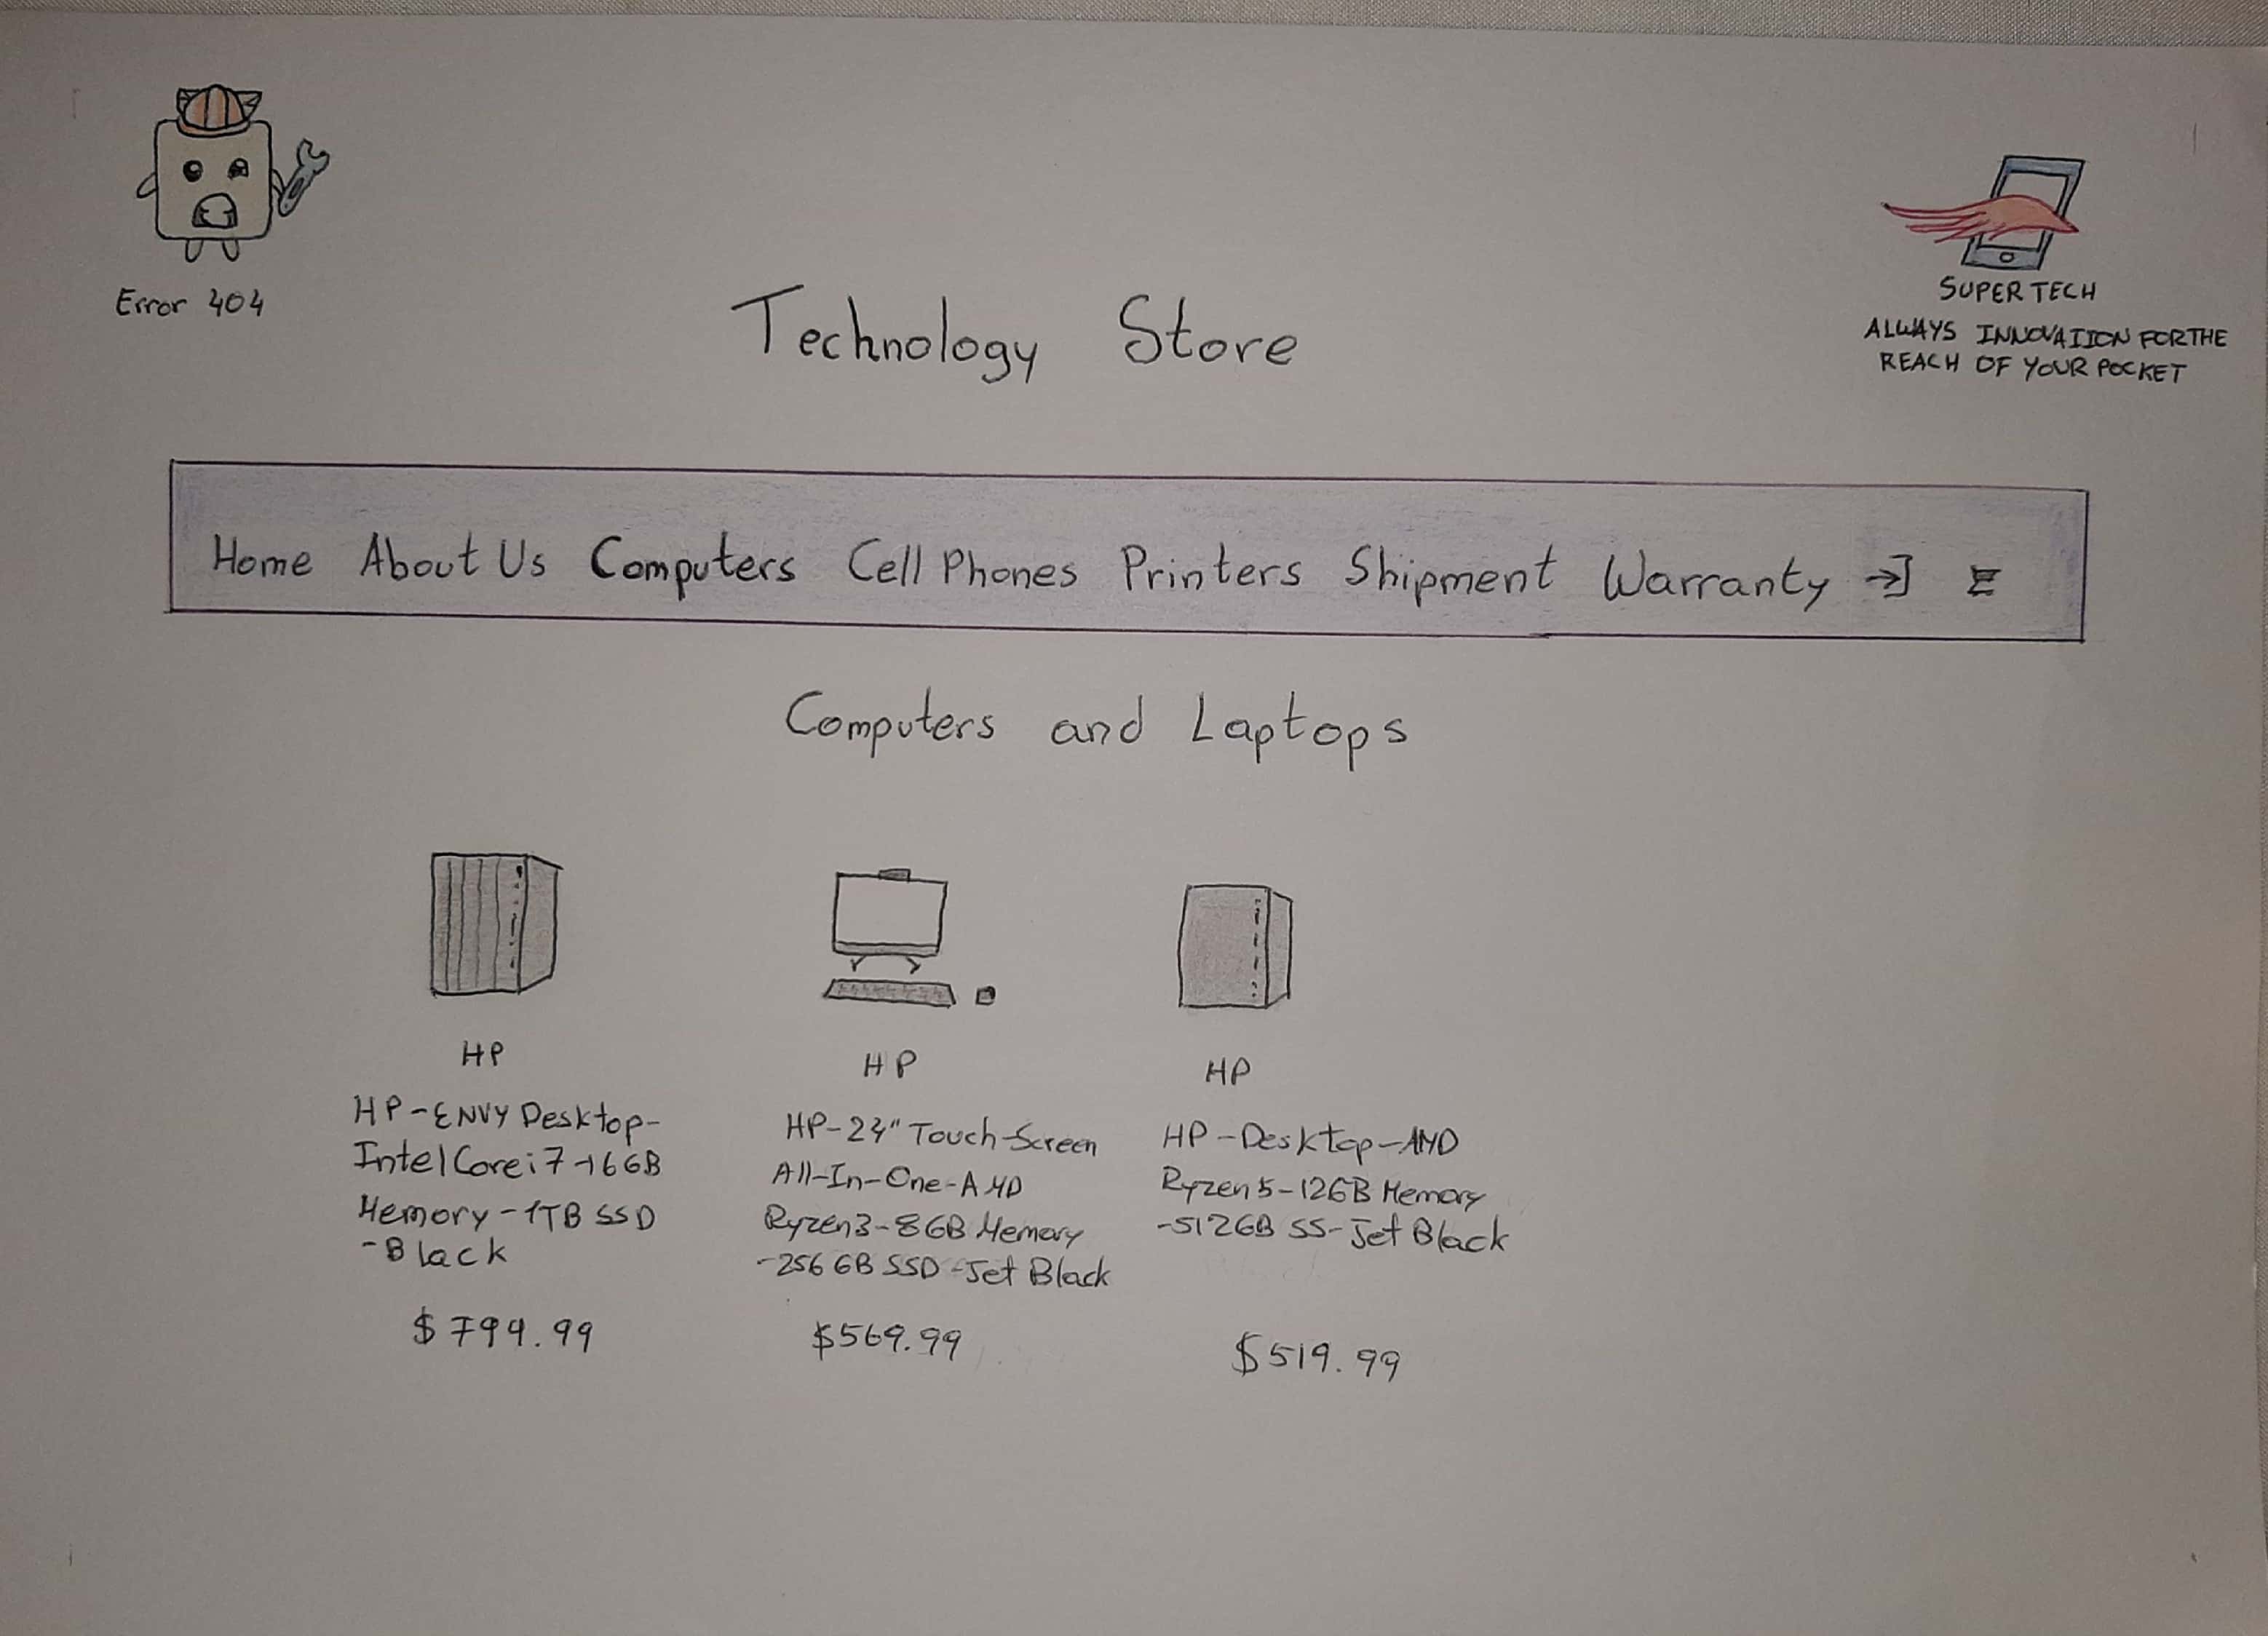 Error 404
SUPER TECH
ALWAYS INNOVATION FOR THE
REACH OF YOUR POCKET
Technology Store
Home About Us Computers Cell Phones Printers Shipment Warranty
Computers and Laptops
HP
HP-ENVY Desktop-
Intel Core i7-16GB
Memory-1TB SSD
-Black
$799.99
HP
HP-24" Touch-Screen
All-In-One-AMD
Ryzen3-8GB Memory
-256GB SSD-Jet Black
$569.99
HP
HP-Desktop-AMD
Ryzen5-12GB Memory
-512GB SS-Jet Black
$519.99